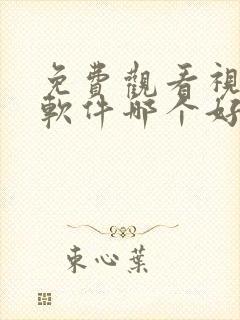 免費觀看視
軟件哪个好
束心葉